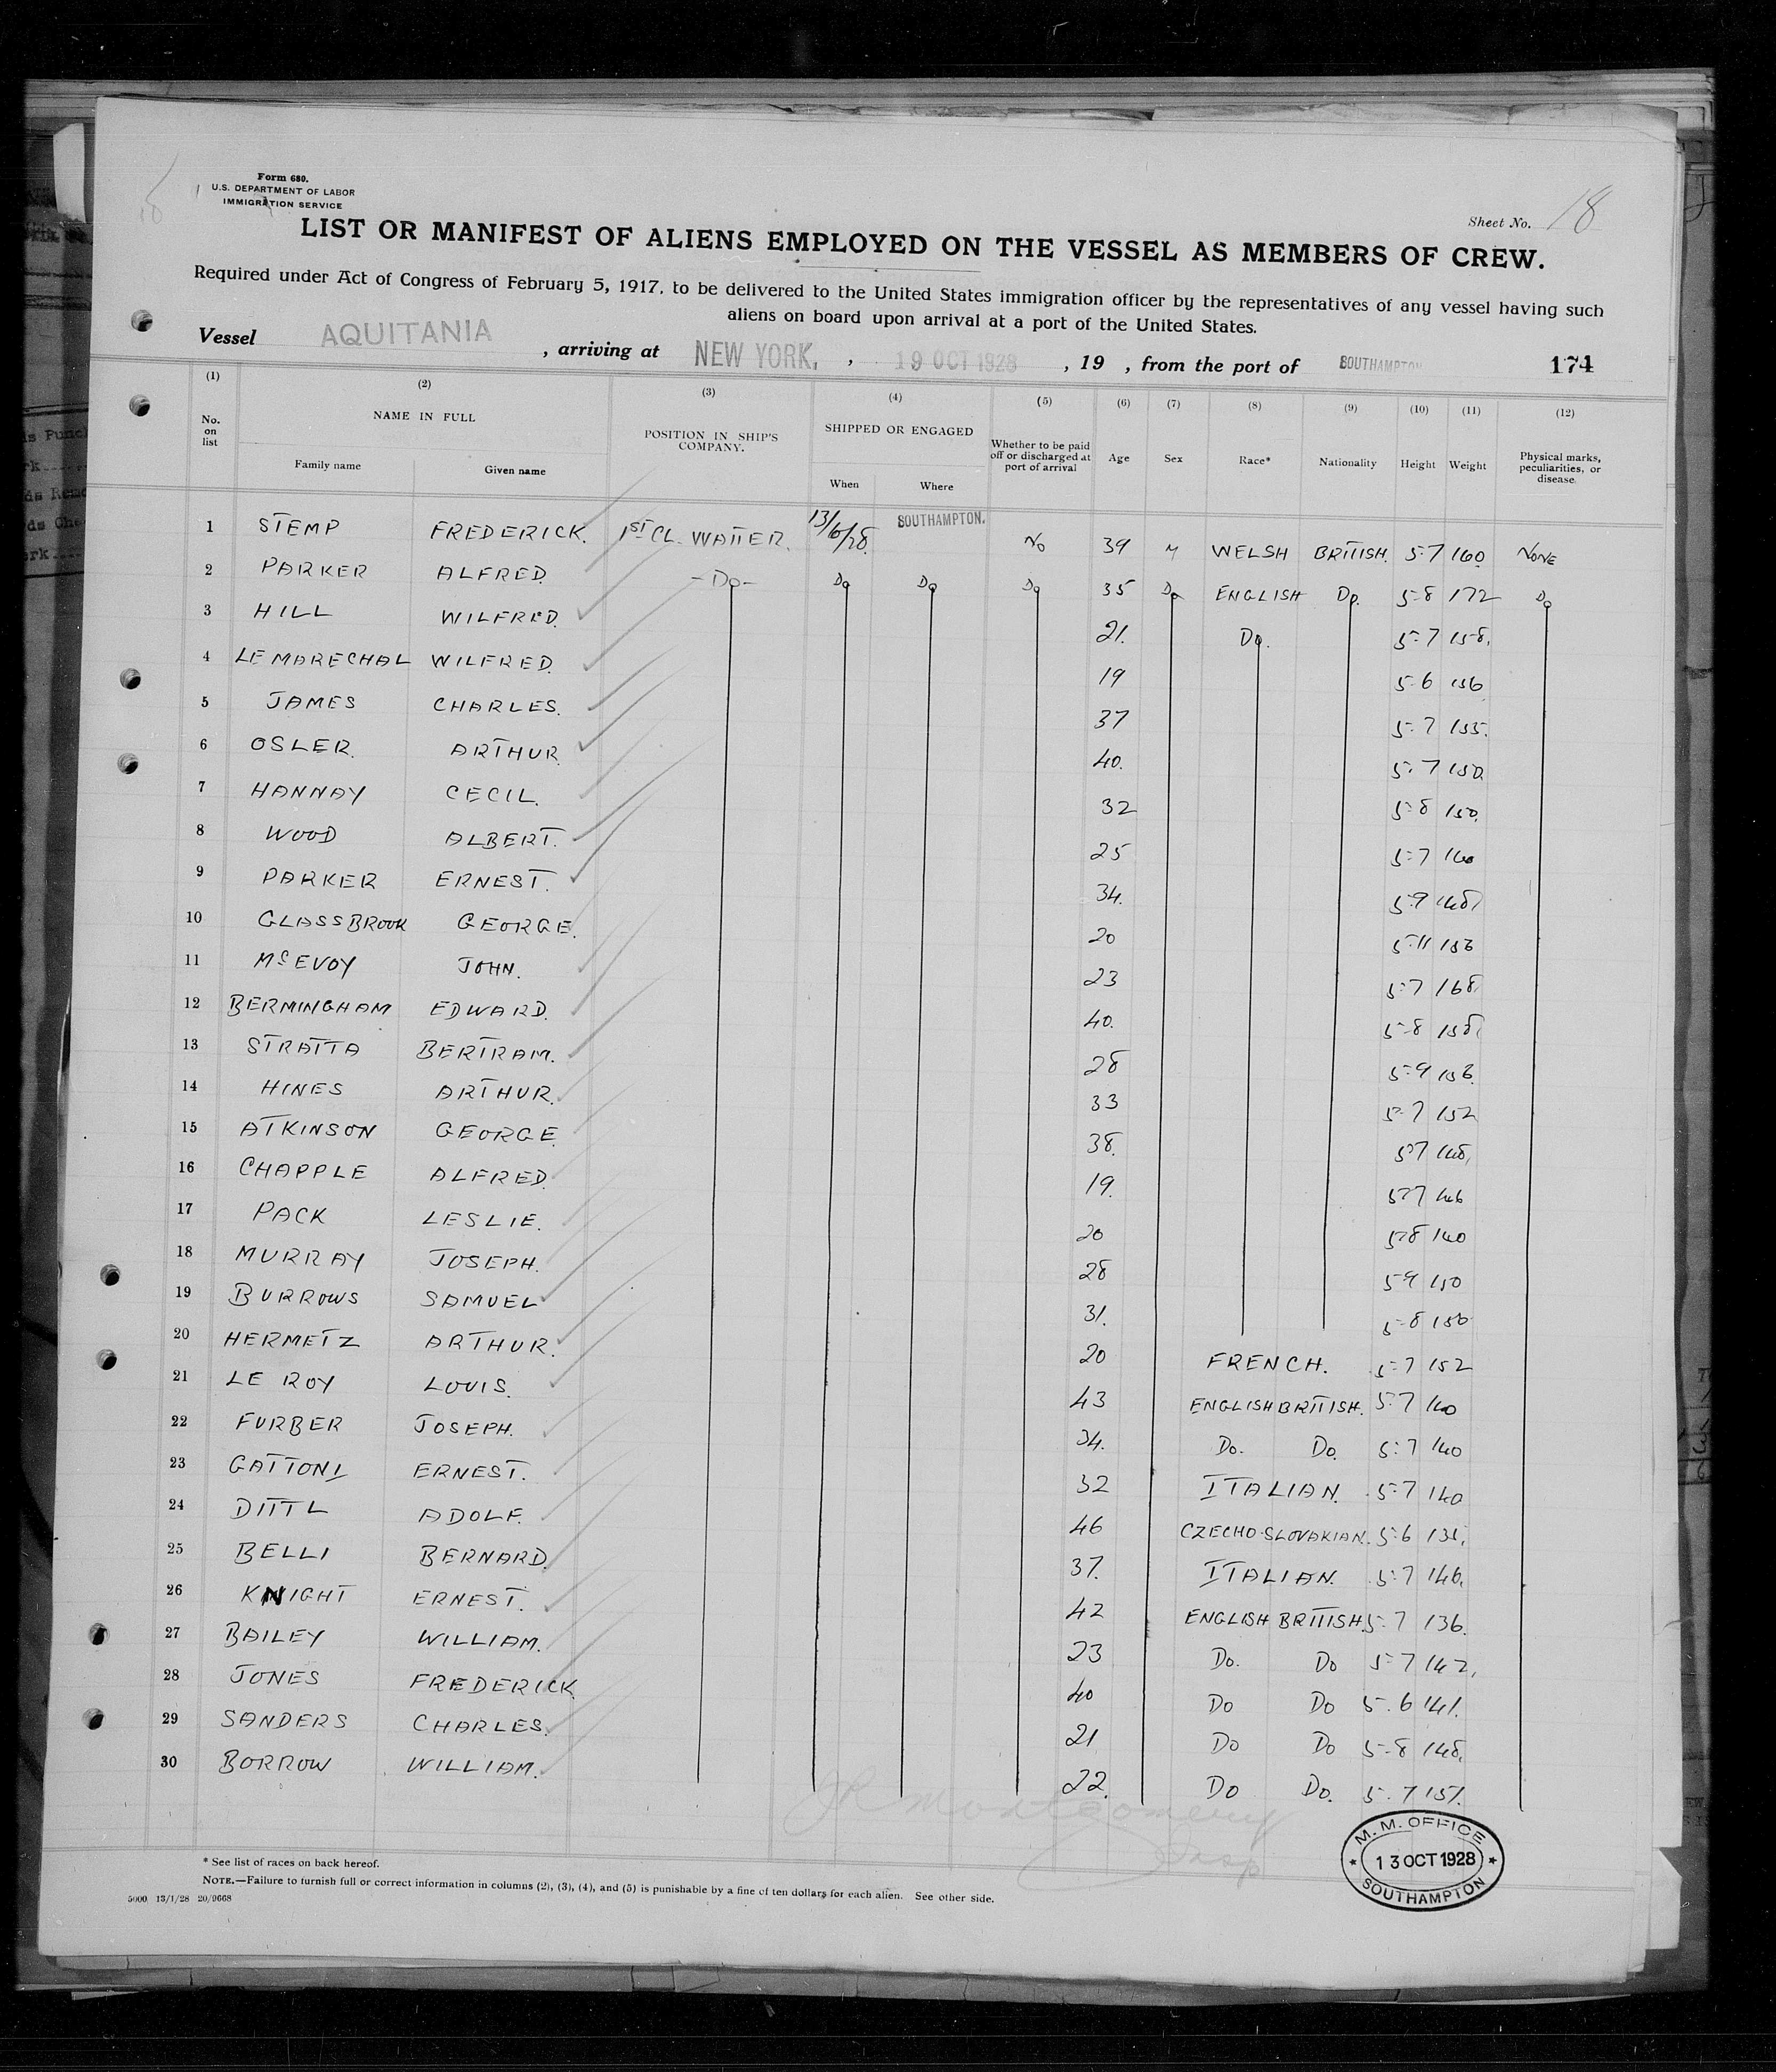 Form 680.
U.S. DEPARTMENT OF LABOR
IMMIGRATION SERVICE
Sheet No. 18
LIST OR MANIFEST OF ALIENS EMPLOYED ON THE VESSEL AS MEMBERS OF CREW.
Required under Act of Congress of February 5, 1917, to be delivered to the United States immigration officer by the representatives of any vessel having such
aliens on board upon arrival at a port of the United States.
Vessel AQUITANIA , arriving at NEW YORK, , 19 OCT 1928 , 19 , from the port of SOUTHAMPTON 174
(1) (2) (3) (4) (5) (6) (7) (8) (9) (10) (11) (12)
No. on list NAME IN FULL POSITION IN SHIP'S COMPANY. SHIPPED OR ENGAGED Whether to be paid off or discharged at port of arrival Age Sex Race* Nationality Height Weight Physical marks, peculiarities, or disease.
Family name Given name When Where
1 STEMP FREDERICK. 1ST CL. WAITER. SOUTHAMPTON. No 39 M WELSH BRITISH. 5-7 160 NONE
2 PARKER ALFRED. -Do- Do Do Do 35 Do ENGLISH Do. 5-8 172 Do
3 HILL WILFRED. 21. Do. 5-7 158.
4 LE MARECHAL WILFRED. 19 5-6 156
5 JAMES CHARLES. 37 5-7 155.
6 OSLER. ARTHUR. 40. 5-7 150
7 HANNAY CECIL. 32 5-8 150.
8 WOOD ALBERT. 25 5-7 160
9 PARKER ERNEST. 34. 5-9 148
10 GLASSBROOK GEORGE. 20 5-11 156
11 McEVOY JOHN. 23 5-7 168
12 BERMINGHAM EDWARD. 40. 5-8 158
13 STRATTA BERTRAM. 28 5-9 156.
14 HINES ARTHUR. 33 5-7 152
15 ATKINSON GEORGE. 38. 5-7 148.
16 CHAPPLE ALFRED. 19. 5-7 146
17 PACK LESLIE. 20 5-8 140
18 MURRAY JOSEPH. 28 5-9 150
19 BURROWS SAMUEL 31. 5-8 150
20 HERMETZ ARTHUR. 20 FRENCH. 5-7 152
21 LE ROY LOUIS. 43 ENGLISH BRITISH. 5-7 140
22 FURBER JOSEPH. 34. Do. Do. 5-7 140
23 GATTONI ERNEST. 32 ITALIAN. 5-7 140
24 DITTL ADOLF. 46 CZECHO-SLOVAKIAN. 5-6 135.
25 BELLI BERNARD. 37. ITALIAN. 5-7 146.
26 KNIGHT ERNEST. 42 ENGLISH BRITISH. 5-7 136.
27 BAILEY WILLIAM. 23 Do. Do 5-7 142.
28 JONES FREDERICK. 40 Do Do 5-6 141.
29 SANDERS CHARLES. 21 Do Do 5-8 148.
30 BORROW WILLIAM. 22. Do Do. 5-7 151.
JR Montgomery
Insp
M. M. OFFICE
13 OCT 1928
SOUTHAMPTON
* See list of races on back hereof.
NOTE.—Failure to furnish full or correct information in columns (2), (3), (4), and (5) is punishable by a fine of ten dollars for each alien. See other side.
5000 13/1/28 20/9668